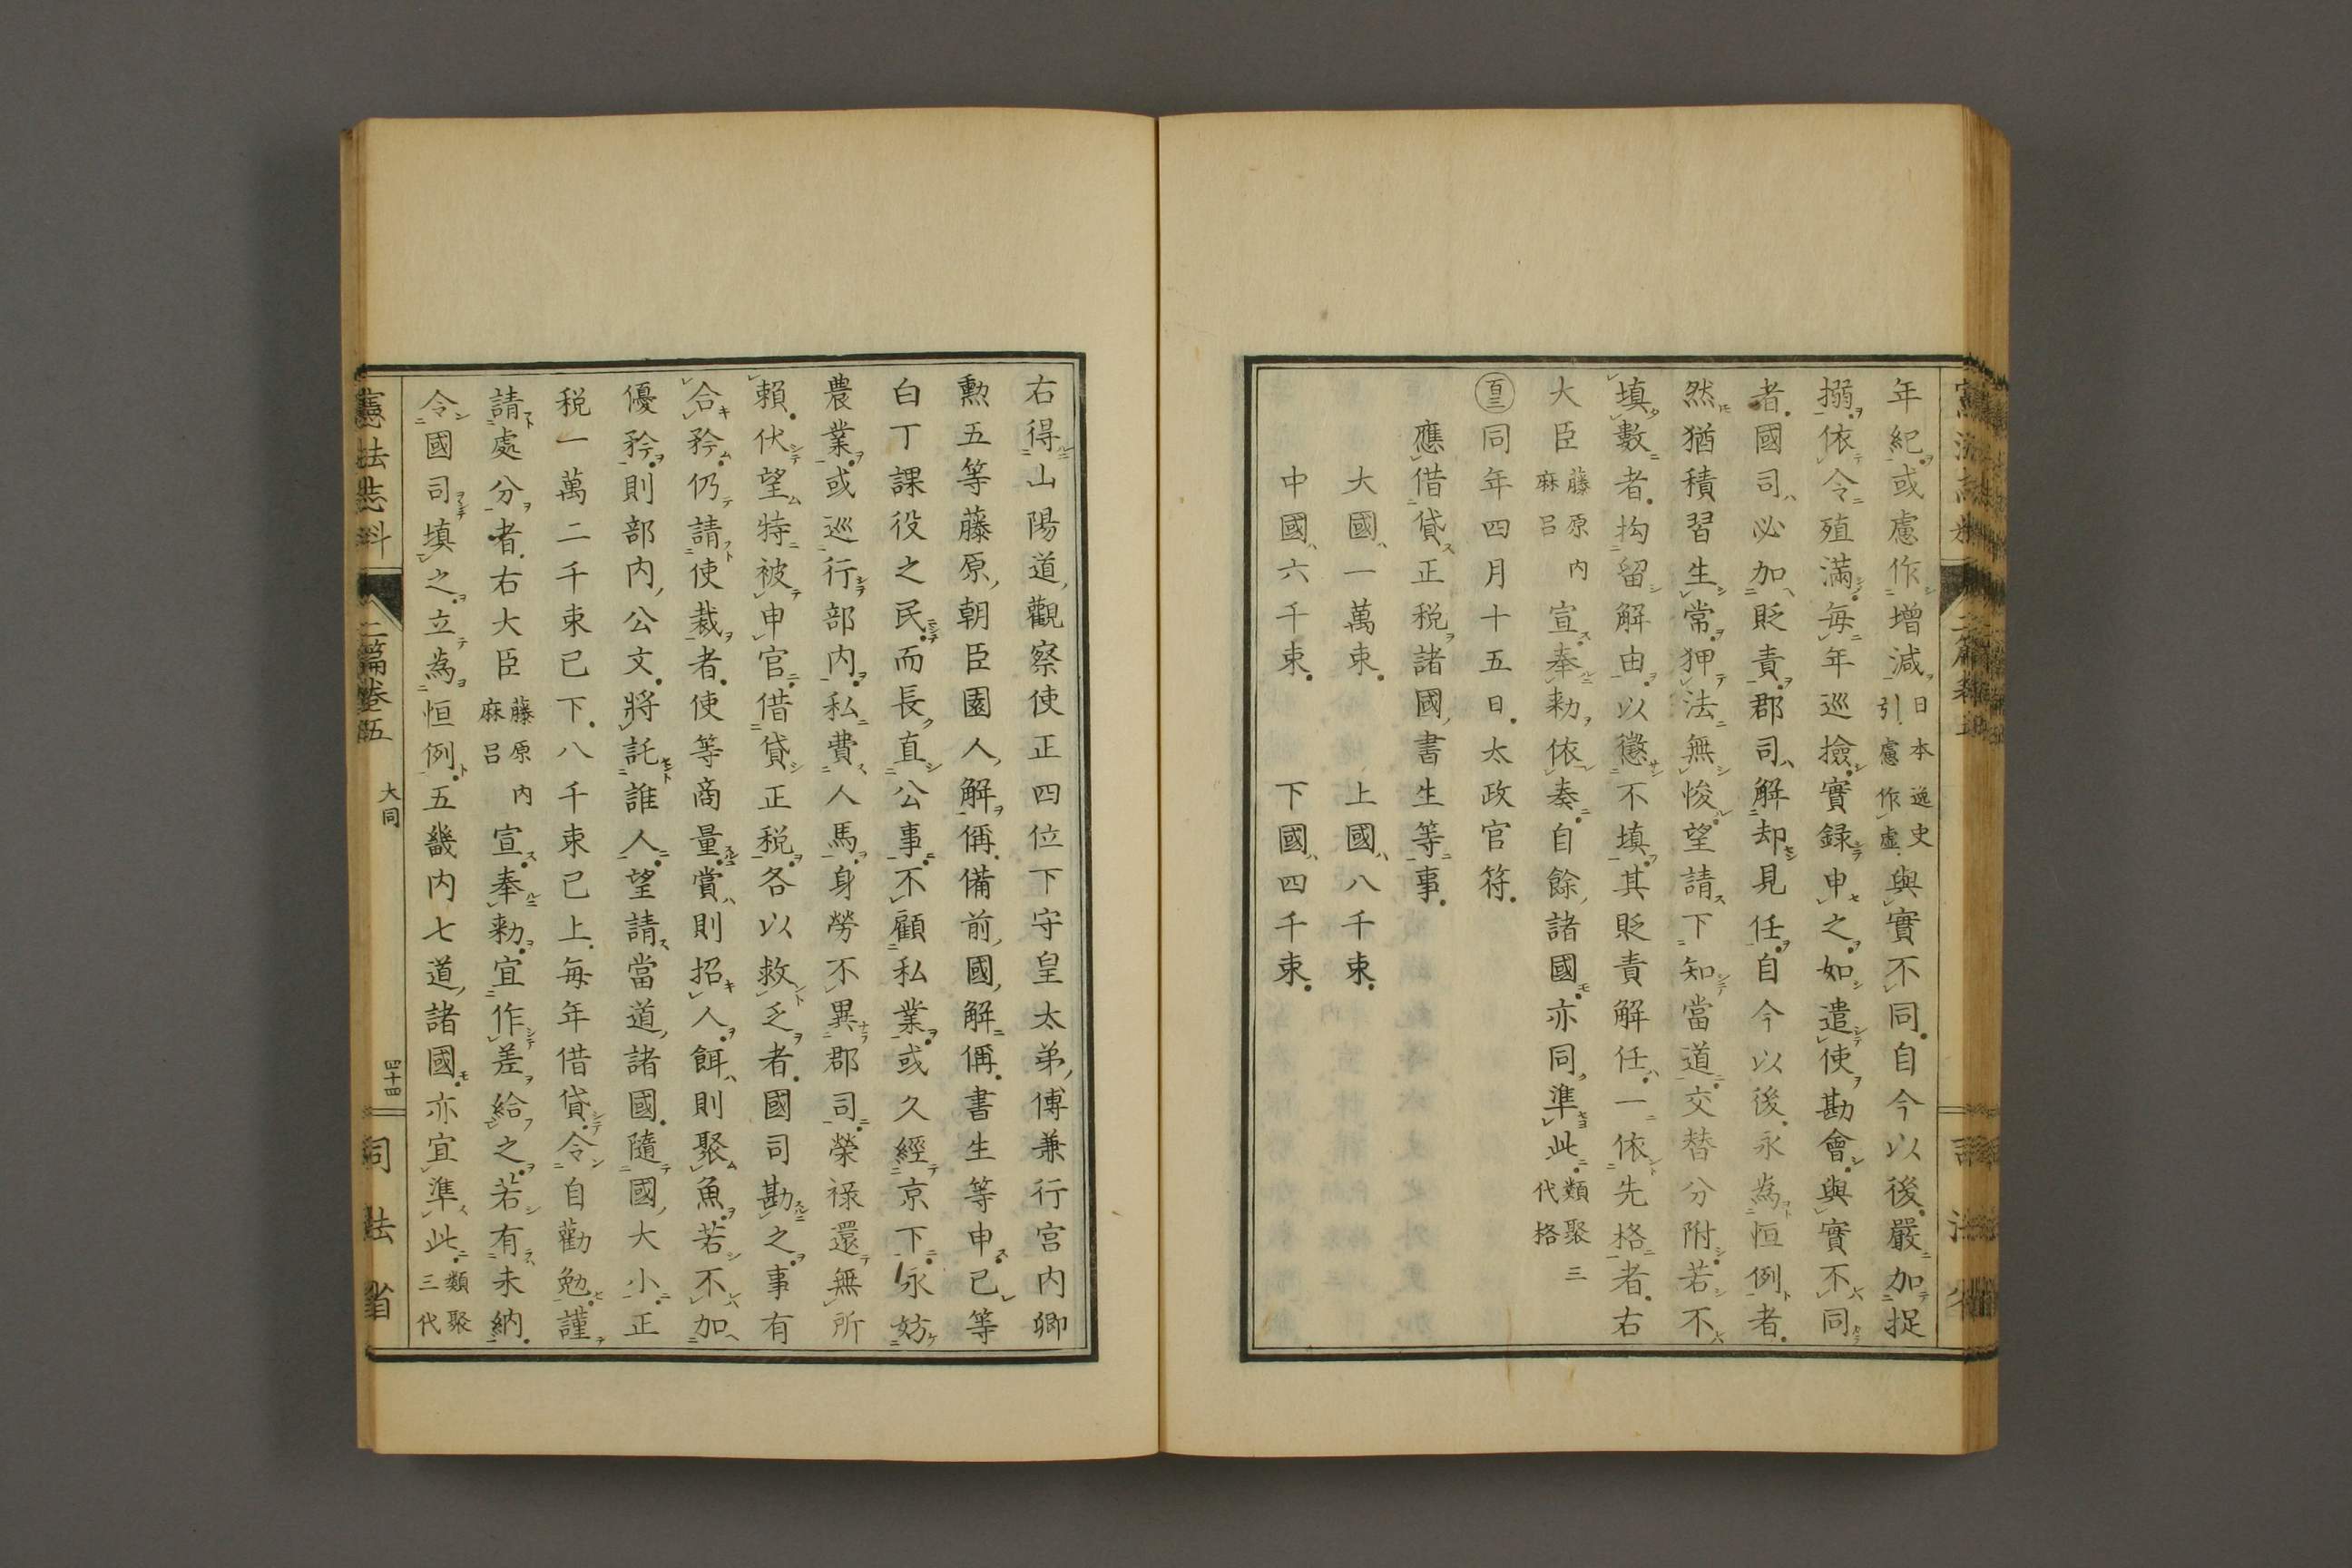 年紀或慮作増減日本逸史引慮作虚與實不同自今以後嚴加捉
搦依令殖滿毎年巡撿實録申之如遣使勘會與實不同
者國司必加貶責郡司解却見任自今以後永為恒例者
然猶積習生常狎法無悛望請下知當道交替分附若不
填數者拘留解由以懲不填其貶責解任一依先格者右
大臣藤原内麻呂宣奉勅依奏自餘諸國亦同準此類聚三代格
同年四月十五日太政官符
應借貸正税諸國書生等事
大國ハ一萬束 上國ハ八千束
中國ハ六千束 下國ハ四千束
右得山陽道觀察使正四位下守皇太弟傅兼行宮内卿
勲五等藤原朝臣園人解偁備前國解偁書生等申已等
白丁課役之民而長直公事不顧私業或久經京下永妨
農業或巡行部内私費人馬身勞不異郡司榮禄還無所
頼伏望特被申官借貸正税各以救乏者國司勘之事有
合矜仍請使裁者使等商量賞則招人餌則聚魚若不加
優矜則部内公文將託誰人望請當道諸國隨國大小正
税一萬二千束已下八千束已上毎年借貸令自勸勉謹
請處分者右大臣藤原内麻呂宣奉勅宜作差給之若有未納
令國司填之立為恒例五畿内七道諸國亦宜準此類聚三代
憲法志料 二篇卷五 大同 四十四 司法省